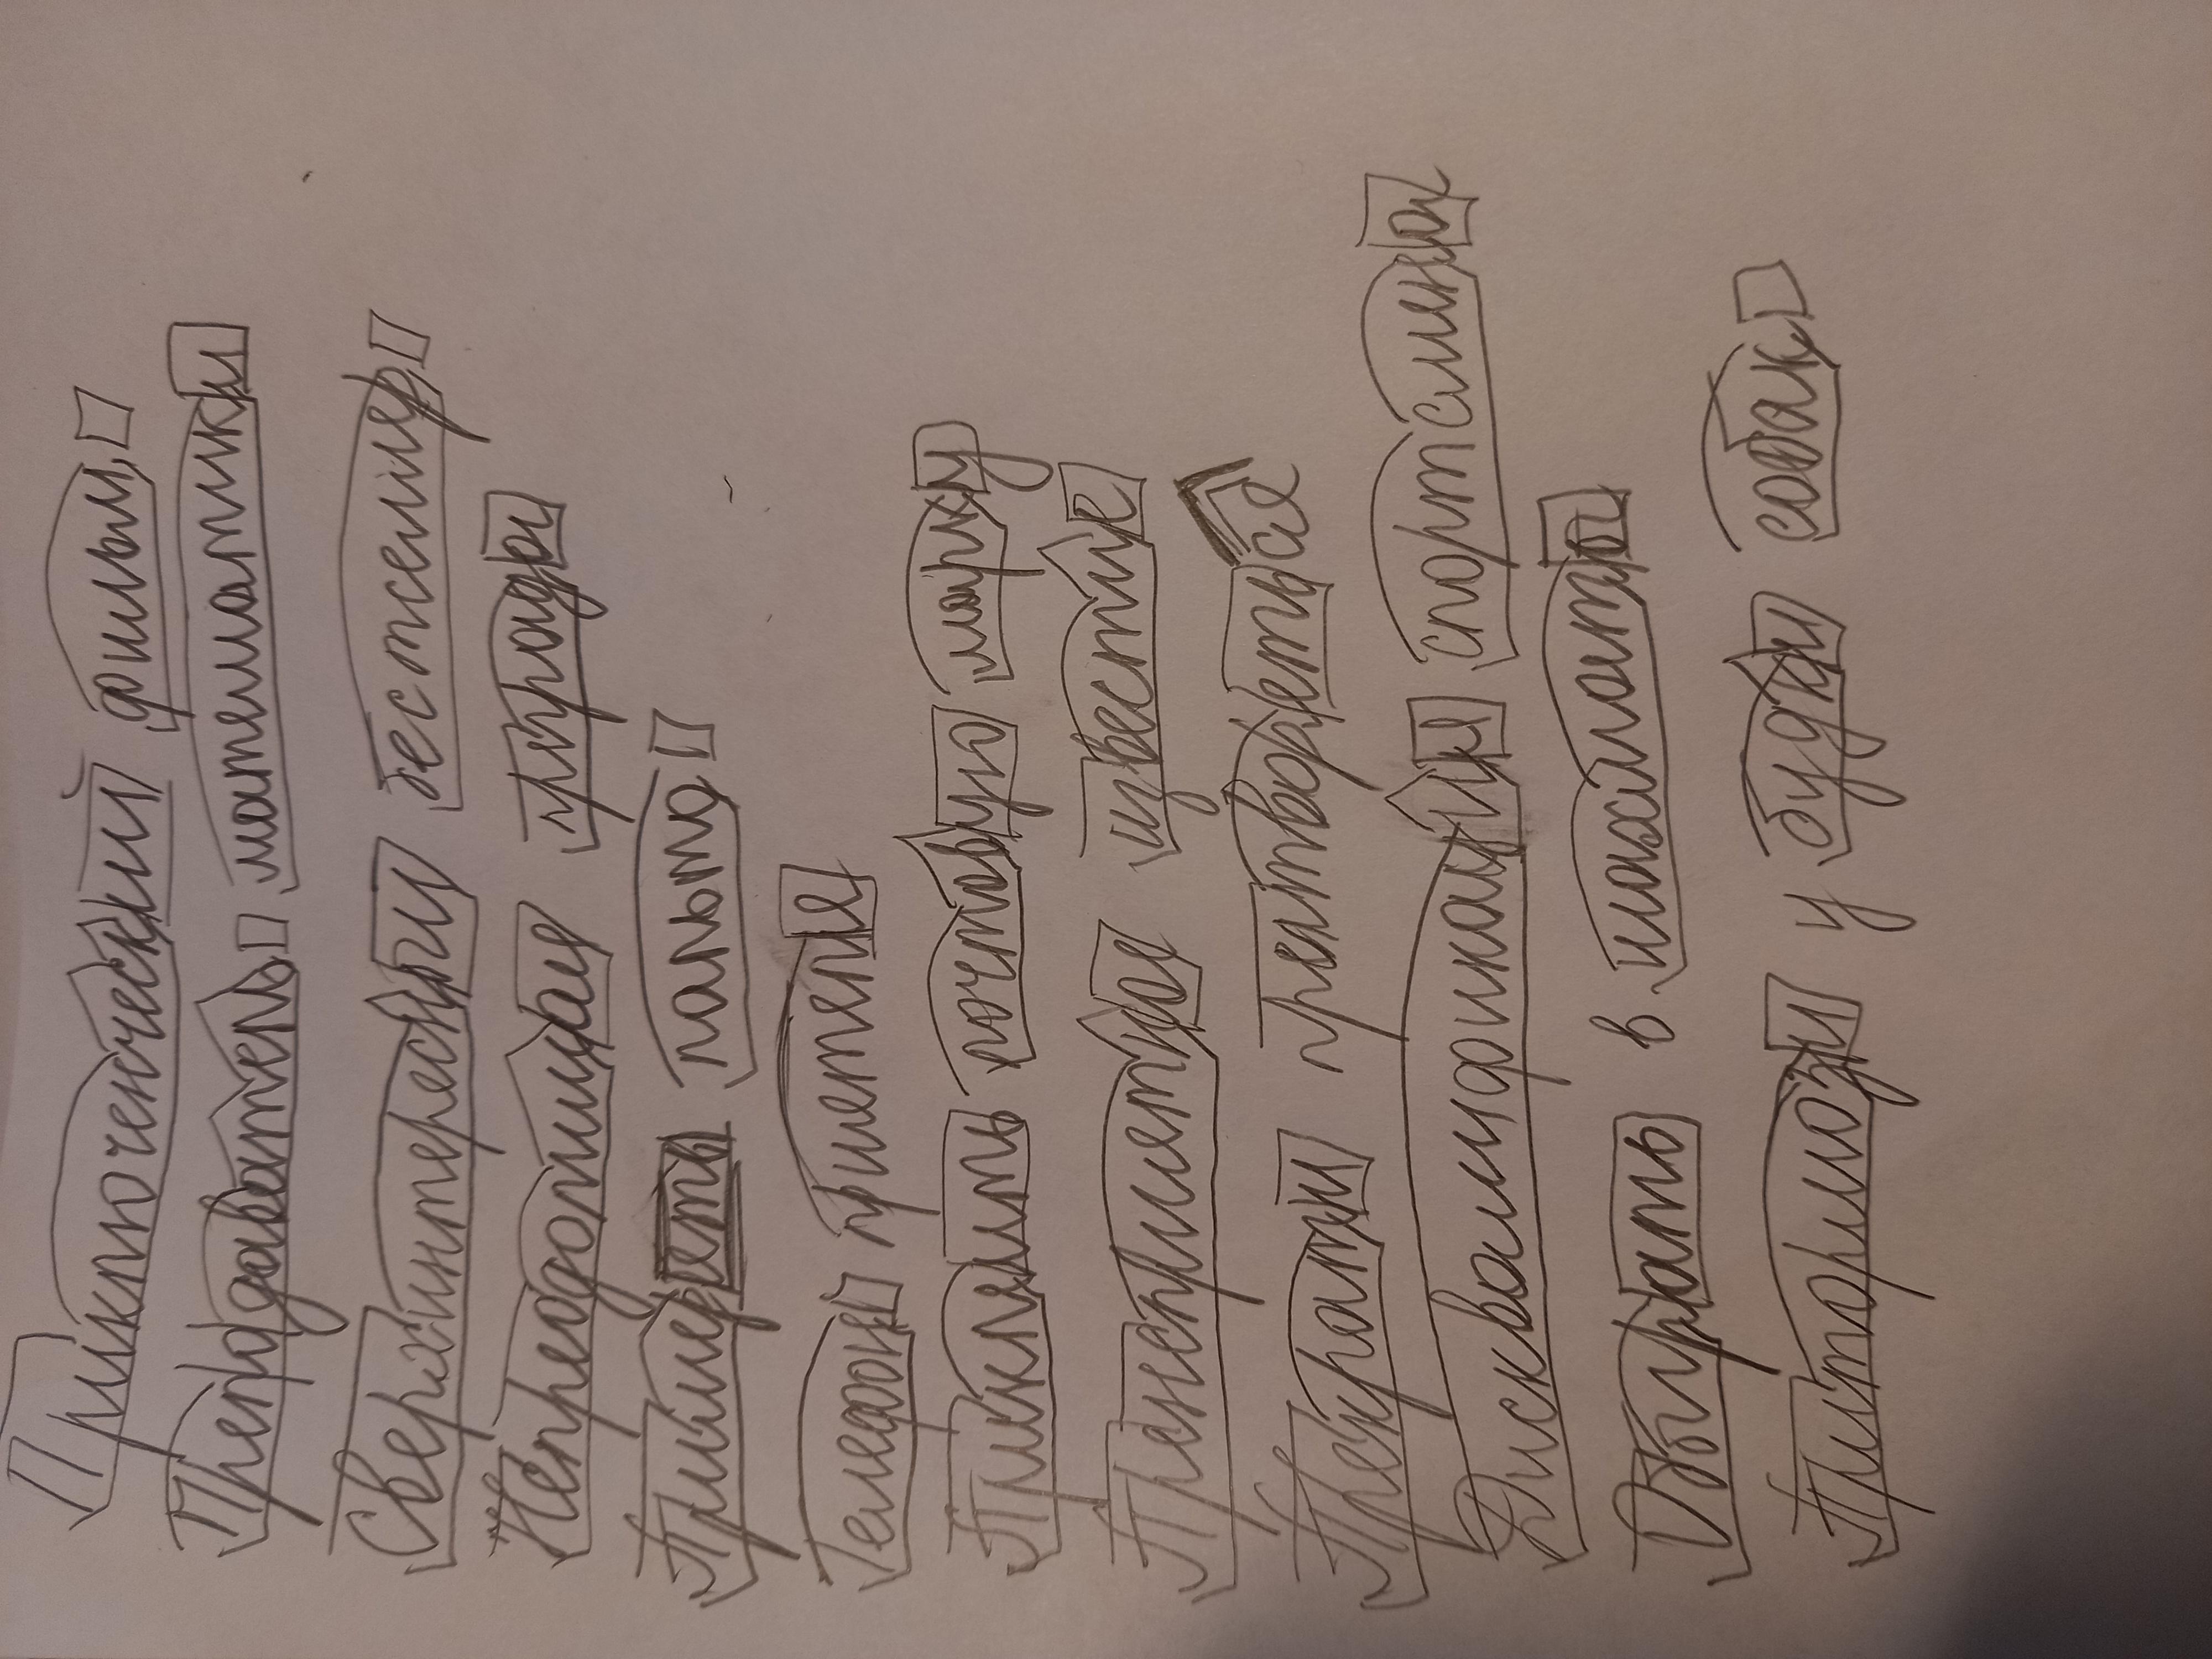 Приключенческий фильм
Преподаватель математики
Сверхинтересный бестселлер
Непреодолицая природы
Примерять пальто
Телефон приятеля
Приклеить почтовую марку
Пренеприятное известие
Прекрати претворяться
Дисквалификация спортсмена
Обыграть в шахматы
Притормози у будки собак